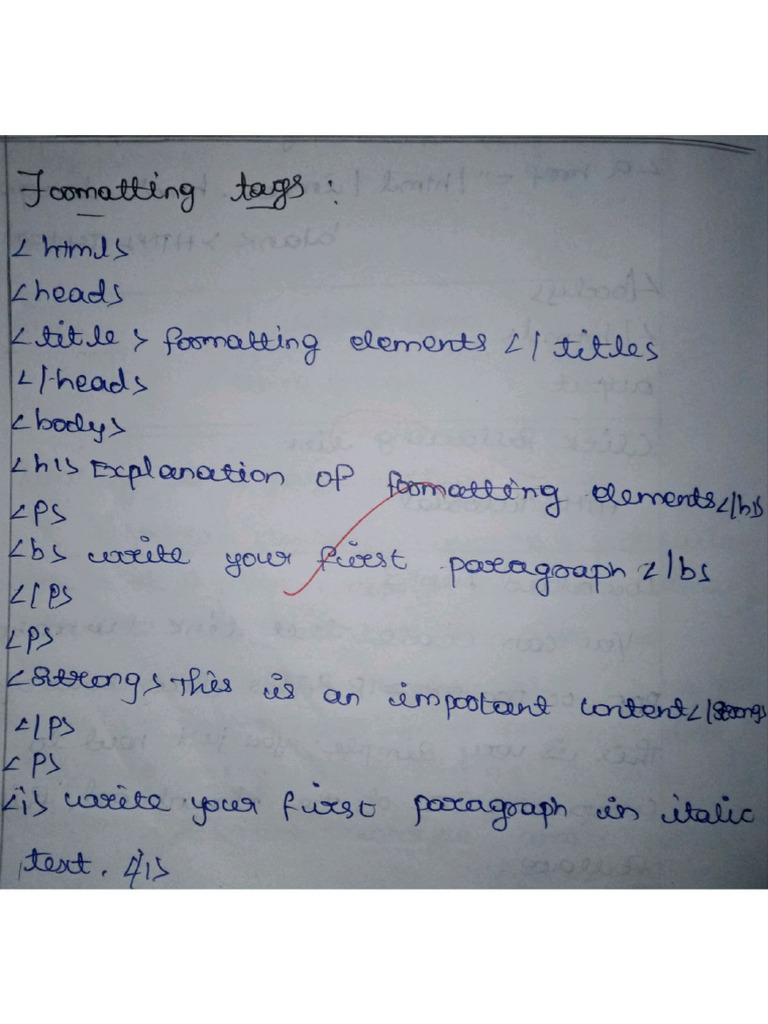 Formatting tags:
<html>
<head>
<title> formatting elements </title>
</head>
<body>
<h1> Explanation of formatting elements </h1>
<p>
<b> write your first paragraph </b>
</p>
<p>
<strong> This is an important content </strong>
</p>
<p>
<i> write your first paragraph in italic
text. </i>